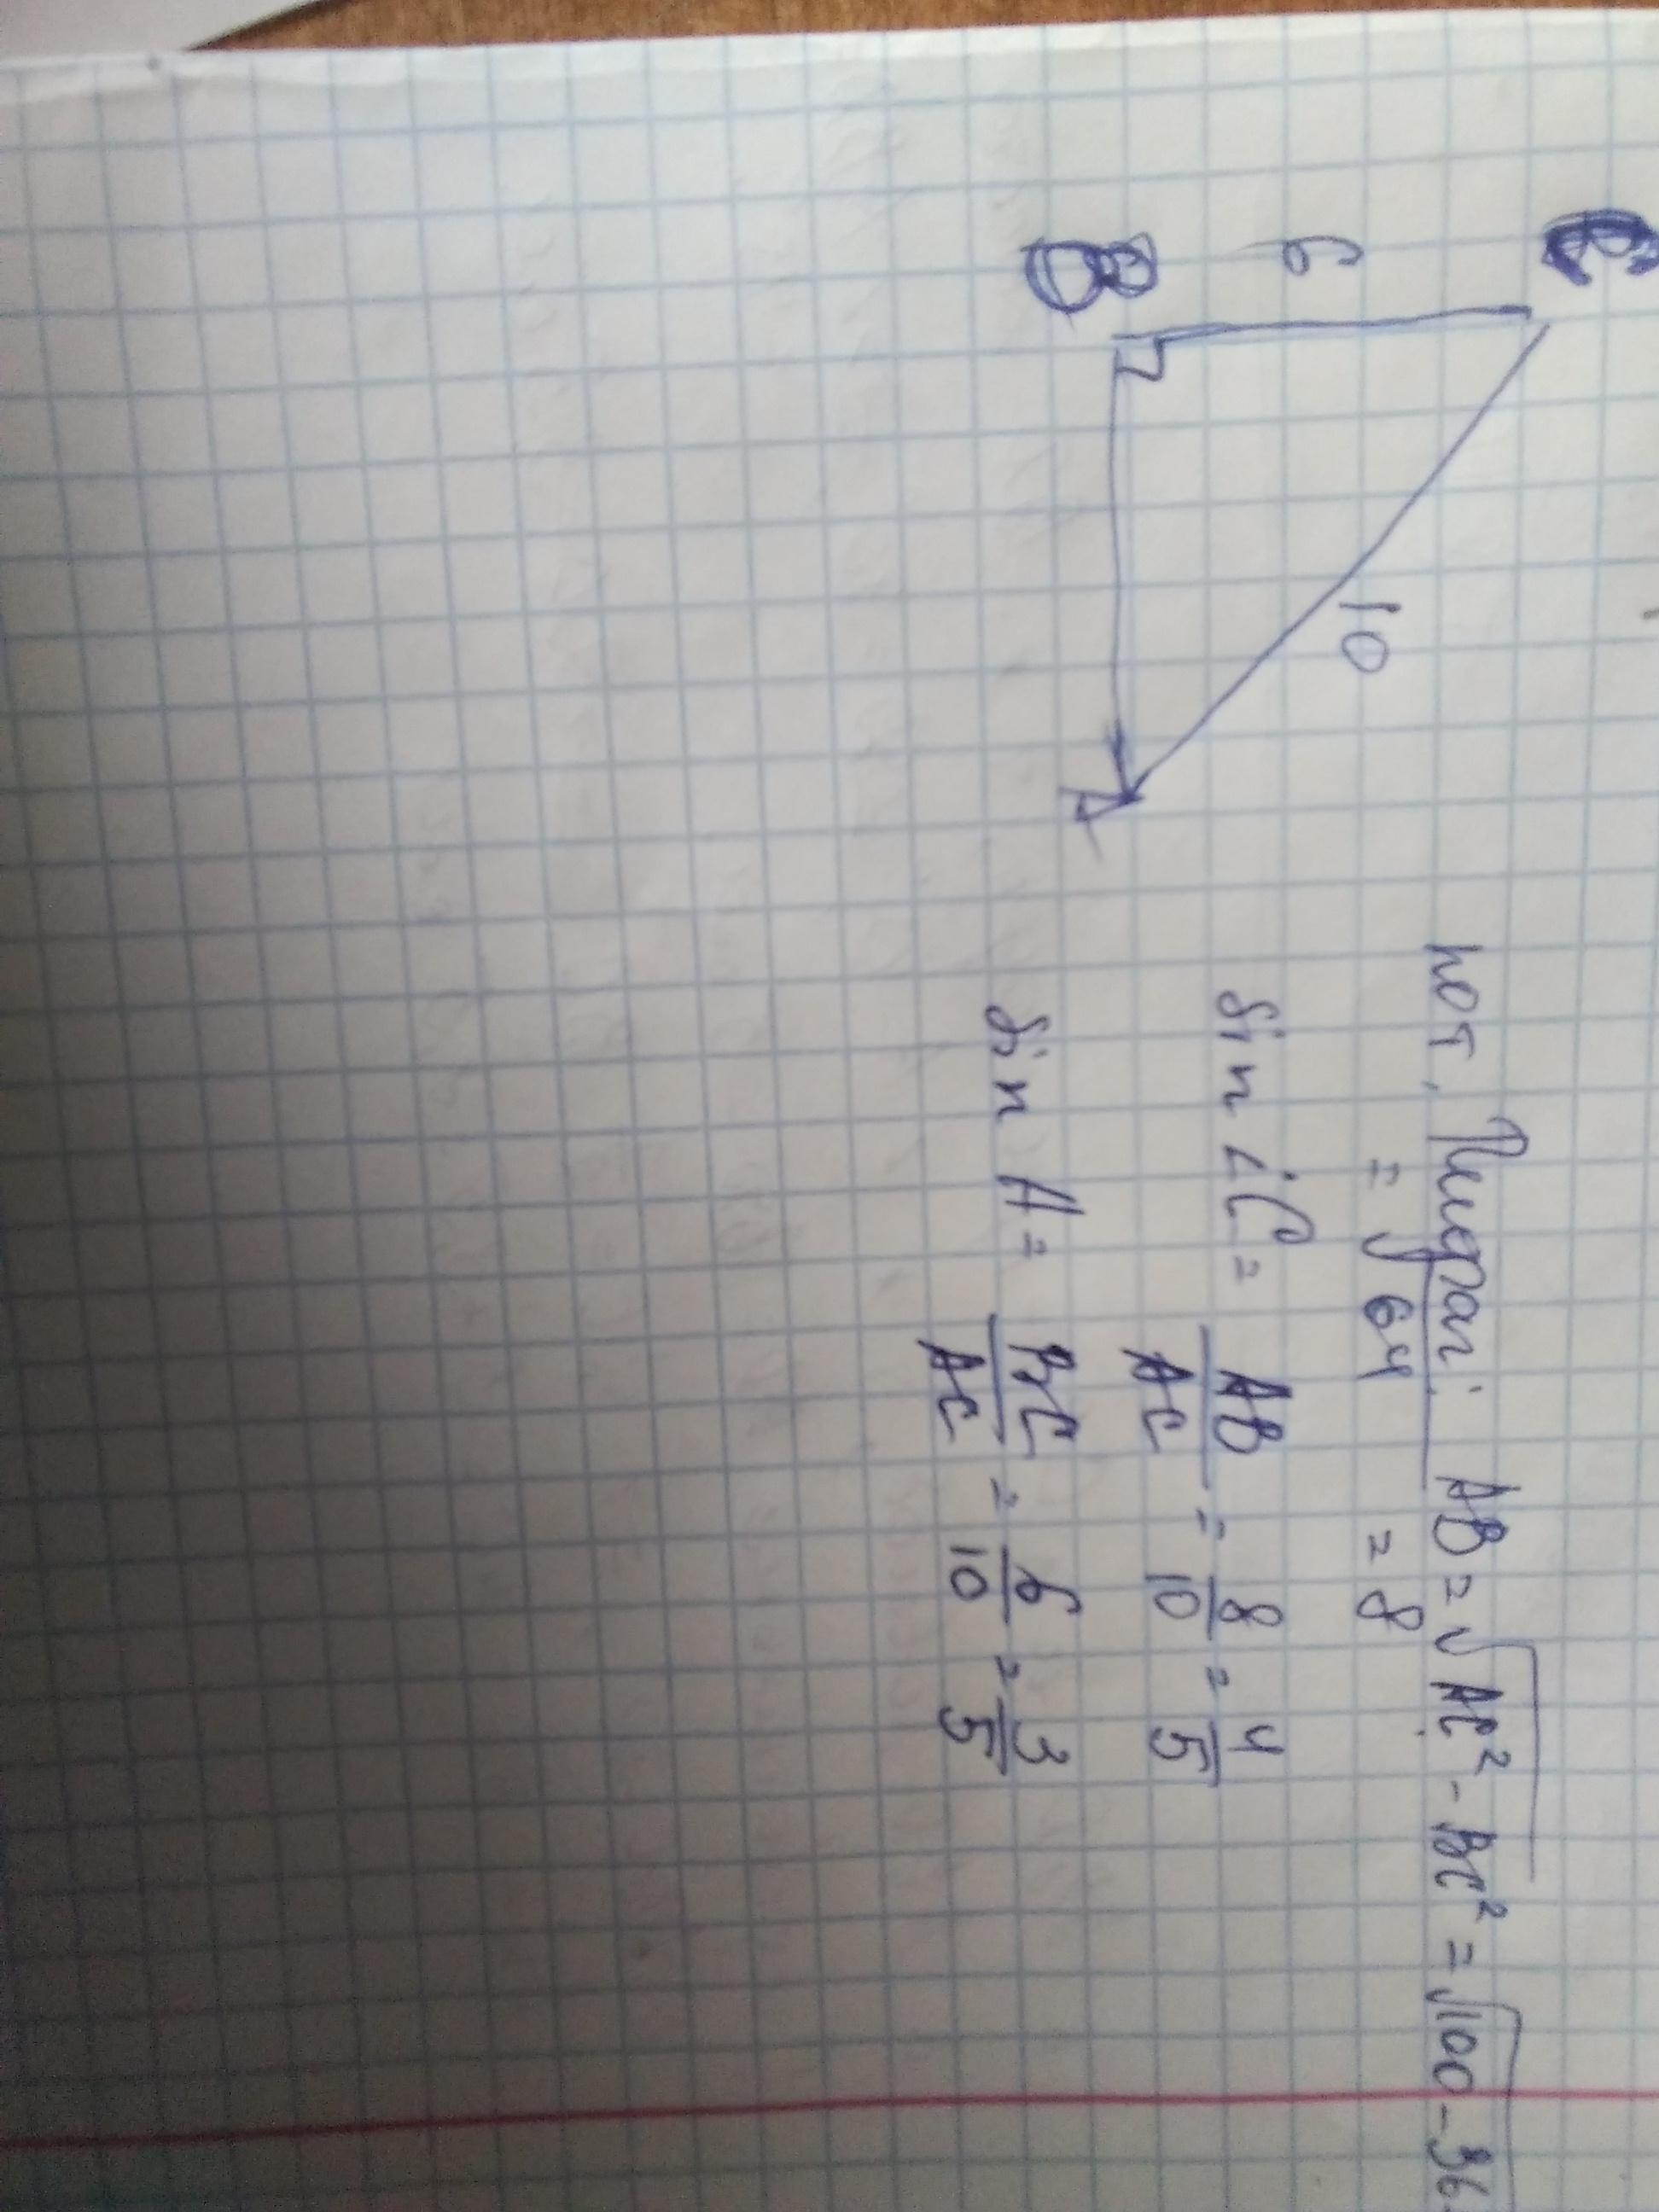 C
6
10
B
A
по т, Пифаг: AB = √AC² - BC² = √100 - 36
= √64 = 8
sin ∠C = AB/AC = 8/10 = 4/5
sin A = BC/AC = 6/10 = 3/5